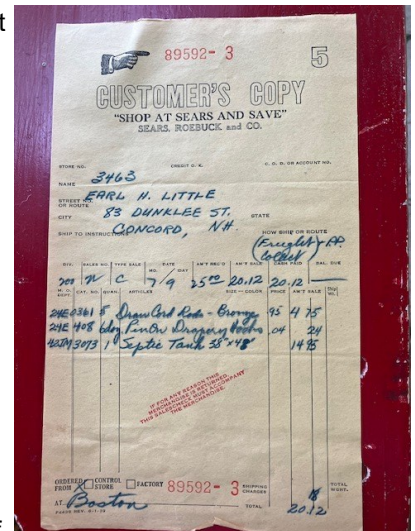 t
89592-3
5
CUSTOMER'S COPY
"SHOP AT SEARS AND SAVE"
SEARS, ROEBUCK and CO.
STORE NO. CREDIT O.K. C. O. D. OR ACCOUNT NO.
3463
NAME EARL H. LITTLE
STREET NO. OR ROUTE 83 DUNKLEE ST.
CITY CONCORD, NH STATE
SHIP TO INSTRUCTIONS HOW SHIP OR ROUTE
Freight & PP.
Collect
DIV. SALES NO. TYPE SALE DATE AM'T REC'D AM'T SALE CASH PAID BAL. DUE
MO. DAY
N C 7/9 25 00 20.12 20.12
M. O. DEPT. CAT. NO. QUAN. ARTICLES SIZE - COLOR PRICE AM'T SALE
24E 0361 5 Draw Cord Rods - Bronze .95 4 75
24E 408 6 doz Pin On Drapery Hooks .04 24
42JM 3073 1 Septic Tank 38"x48" 14 95
IF FOR ANY REASON THIS
MERCHANDISE IS RETURNED,
THIS SALESCHECK MUST ACCOMPANY
THE MERCHANDISE.
ORDERED FROM X CONTROL STORE FACTORY 89592-3 SHIPPING CHARGES 18 TOTAL WGHT.
AT Boston TOTAL 20.12